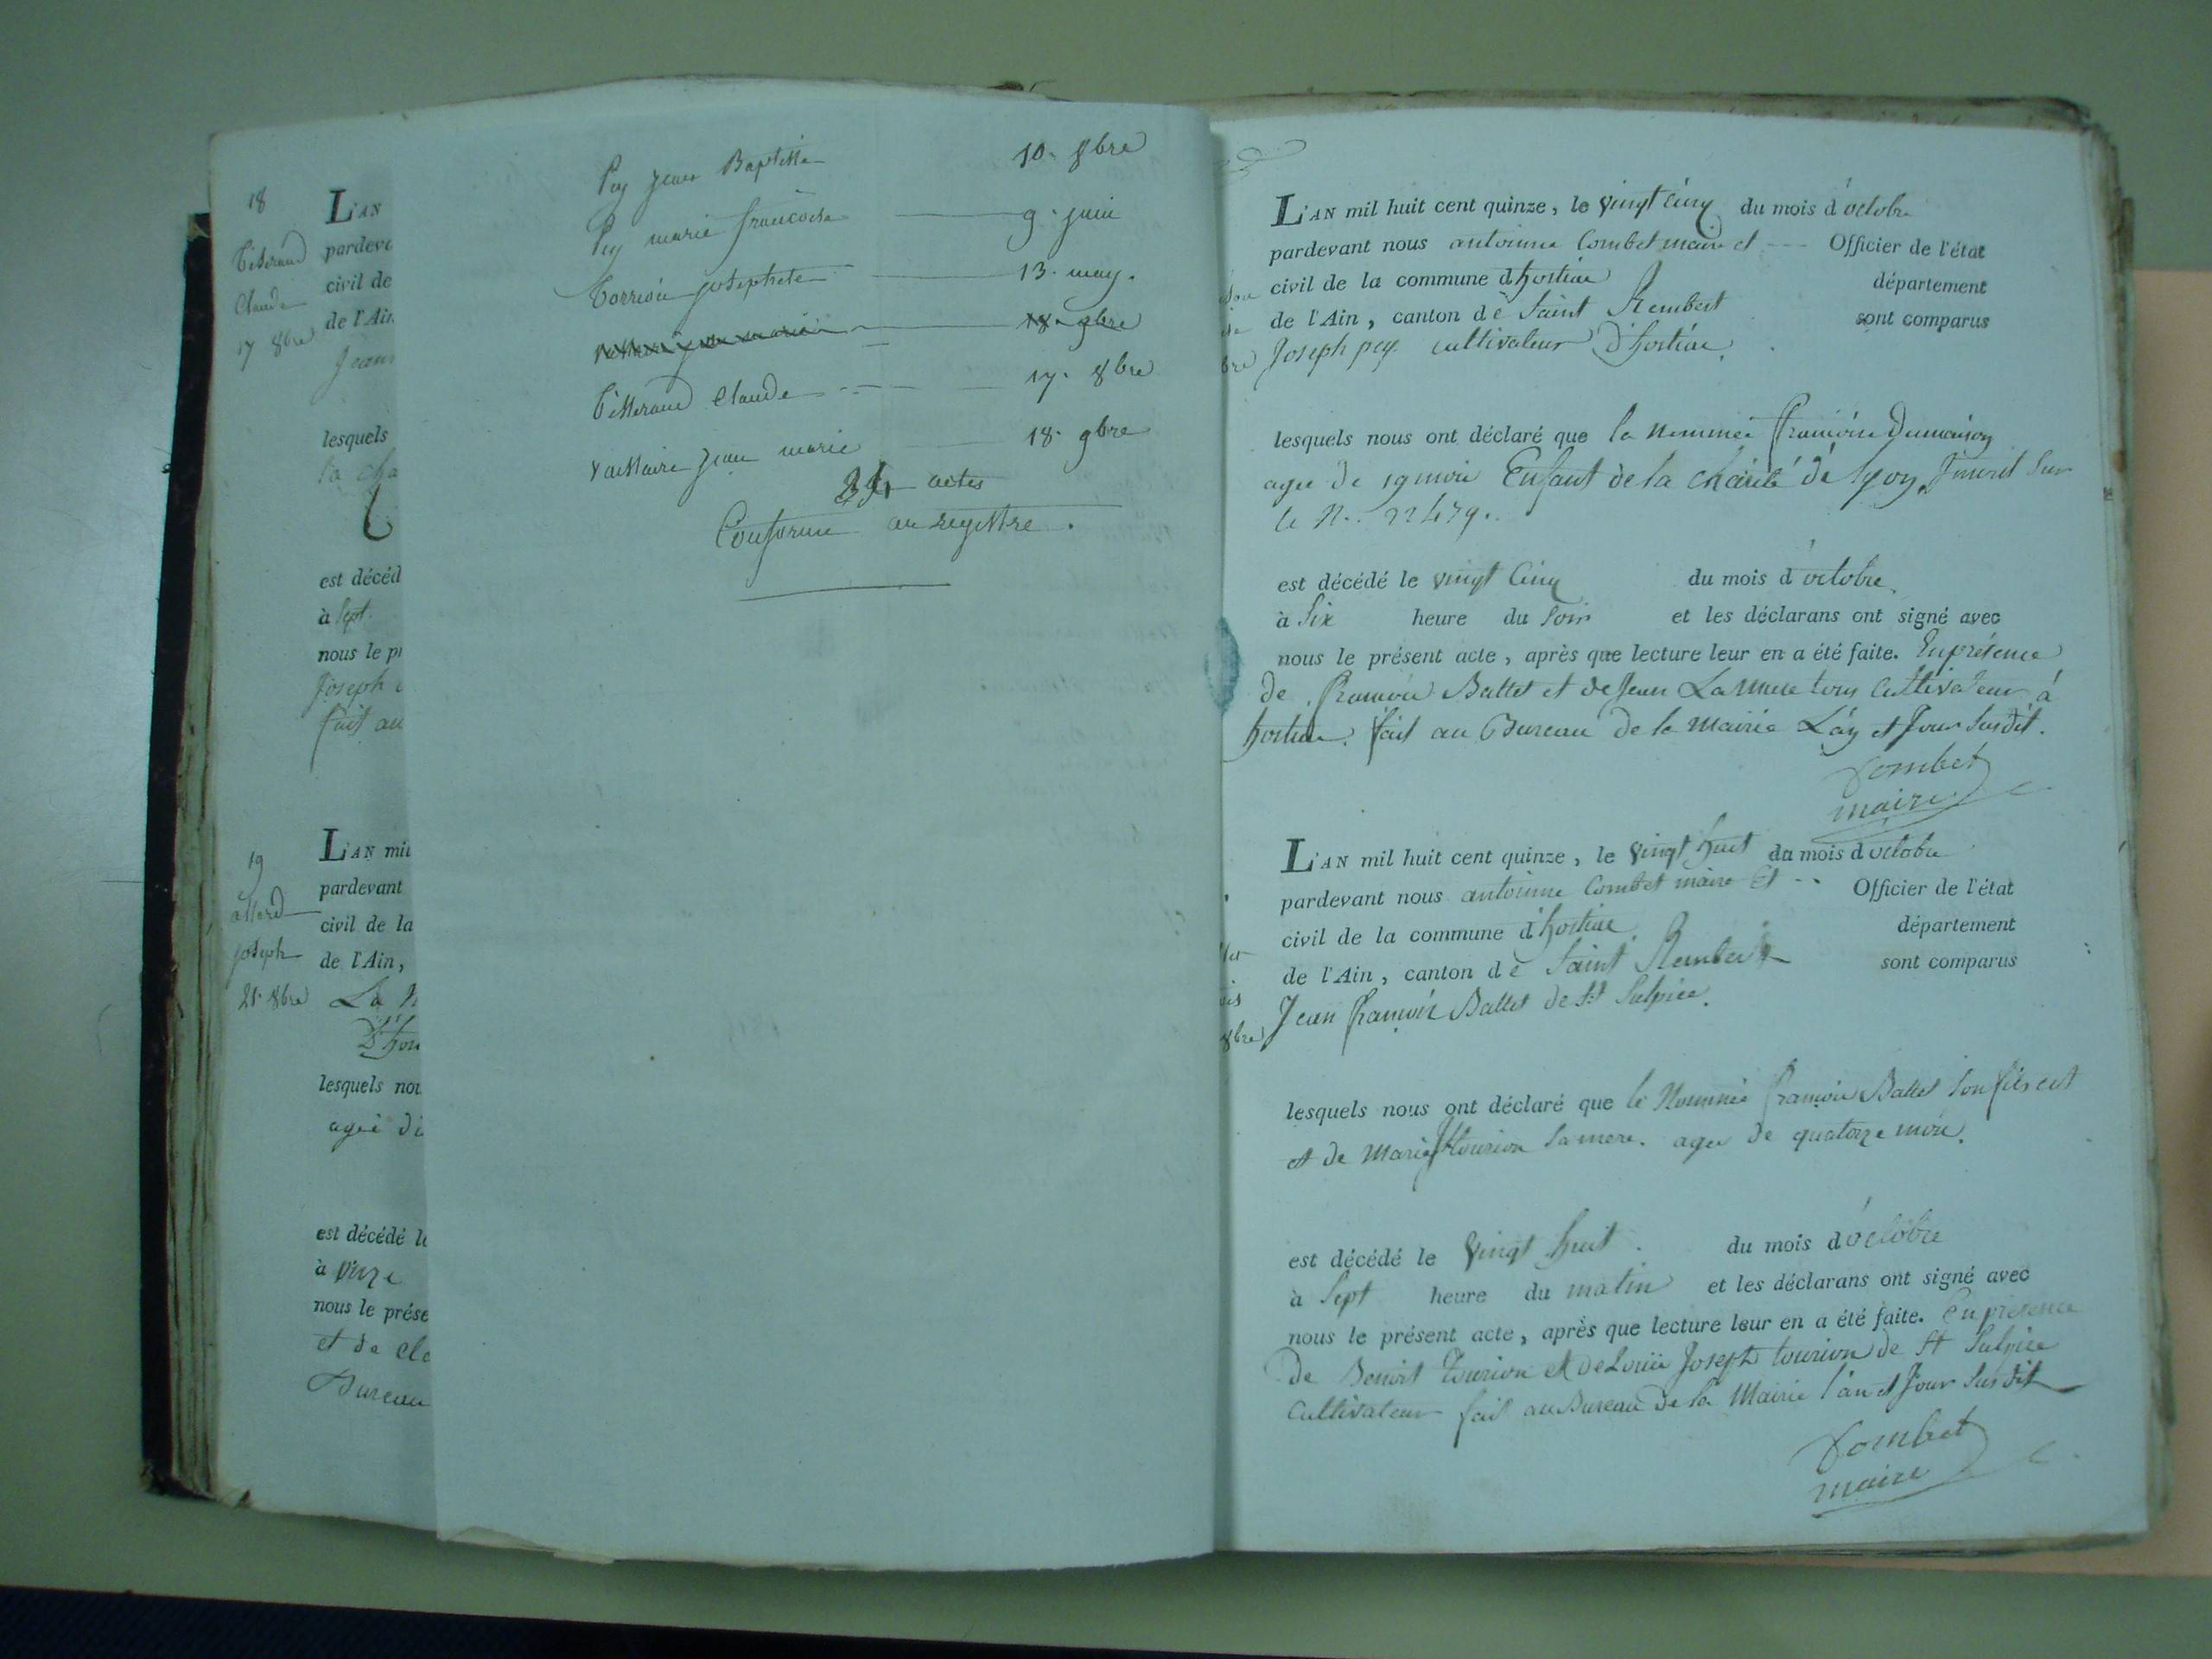 18
Claude
17 8bre
L'AN
pardeva
civil de
de l'Ain
Jean
lesquels
la cha
est décéd
à Sept
nous le pr
Joseph
fait au
19
allard
joseph
21. 8bre
L'AN mil
pardevant
civil de la
de l'Ain,
La N
D'hos
lesquels nou
agée de
est décédé le
à onze
nous le prése
et de Cla
Bureau
Pey jean Baptiste 10. 8bre
Pey marie francoise 9. juin
josephete 13. may.
18. 9bre
Tisserand Claude 17. 8bre
Vuillaire jean marie 18. 9bre
actes
Conforme au registre.
L'AN mil huit cent quinze, le vingt cinq du mois d'octobre
pardevant nous antoinne Combet maire et Officier de l'état
civil de la commune d'hostiae département
de l'Ain, canton de Saint Rembert sont comparus
Joseph pey cultivateur D'hostiae.
lesquels nous ont déclaré que la nommée françoise Dumaison
agee de 19 mois Enfant de la charité de lyon, Jnscrit sur
le N.. 22479..
est décédé le vingt Cinq du mois d'octobre
à Six heure du soir et les déclarans ont signé avec
nous le présent acte, après que lecture leur en a été faite. En présence
de françois Ballet et de Jean cultivateur à
hostiae. fait au Bureau de la mairie L'an et Jour susdit.
Combet
maire
L'AN mil huit cent quinze, le vingt huit du mois d'octobre
pardevant nous antoinne Combet maire et Officier de l'état
civil de la commune d'hostiae département
de l'Ain, canton de Saint Rembert sont comparus
Jean françois Ballet de St Sulpice.
lesquels nous ont déclaré que le Nommée françois Ballet son fils est
et de Marie tourion sa mere. agee de quatorze mois.
est décédé le vingt huit. du mois d'octobre
à Sept heure du matin et les déclarans ont signé avec
nous le présent acte, après que lecture leur en a été faite. En présence
de Benoit tourion et de Louis Joseph tourion de St Sulpice
Cultivateur fait au Bureau de la Mairie l'an et Jour susdit
Combet
maire